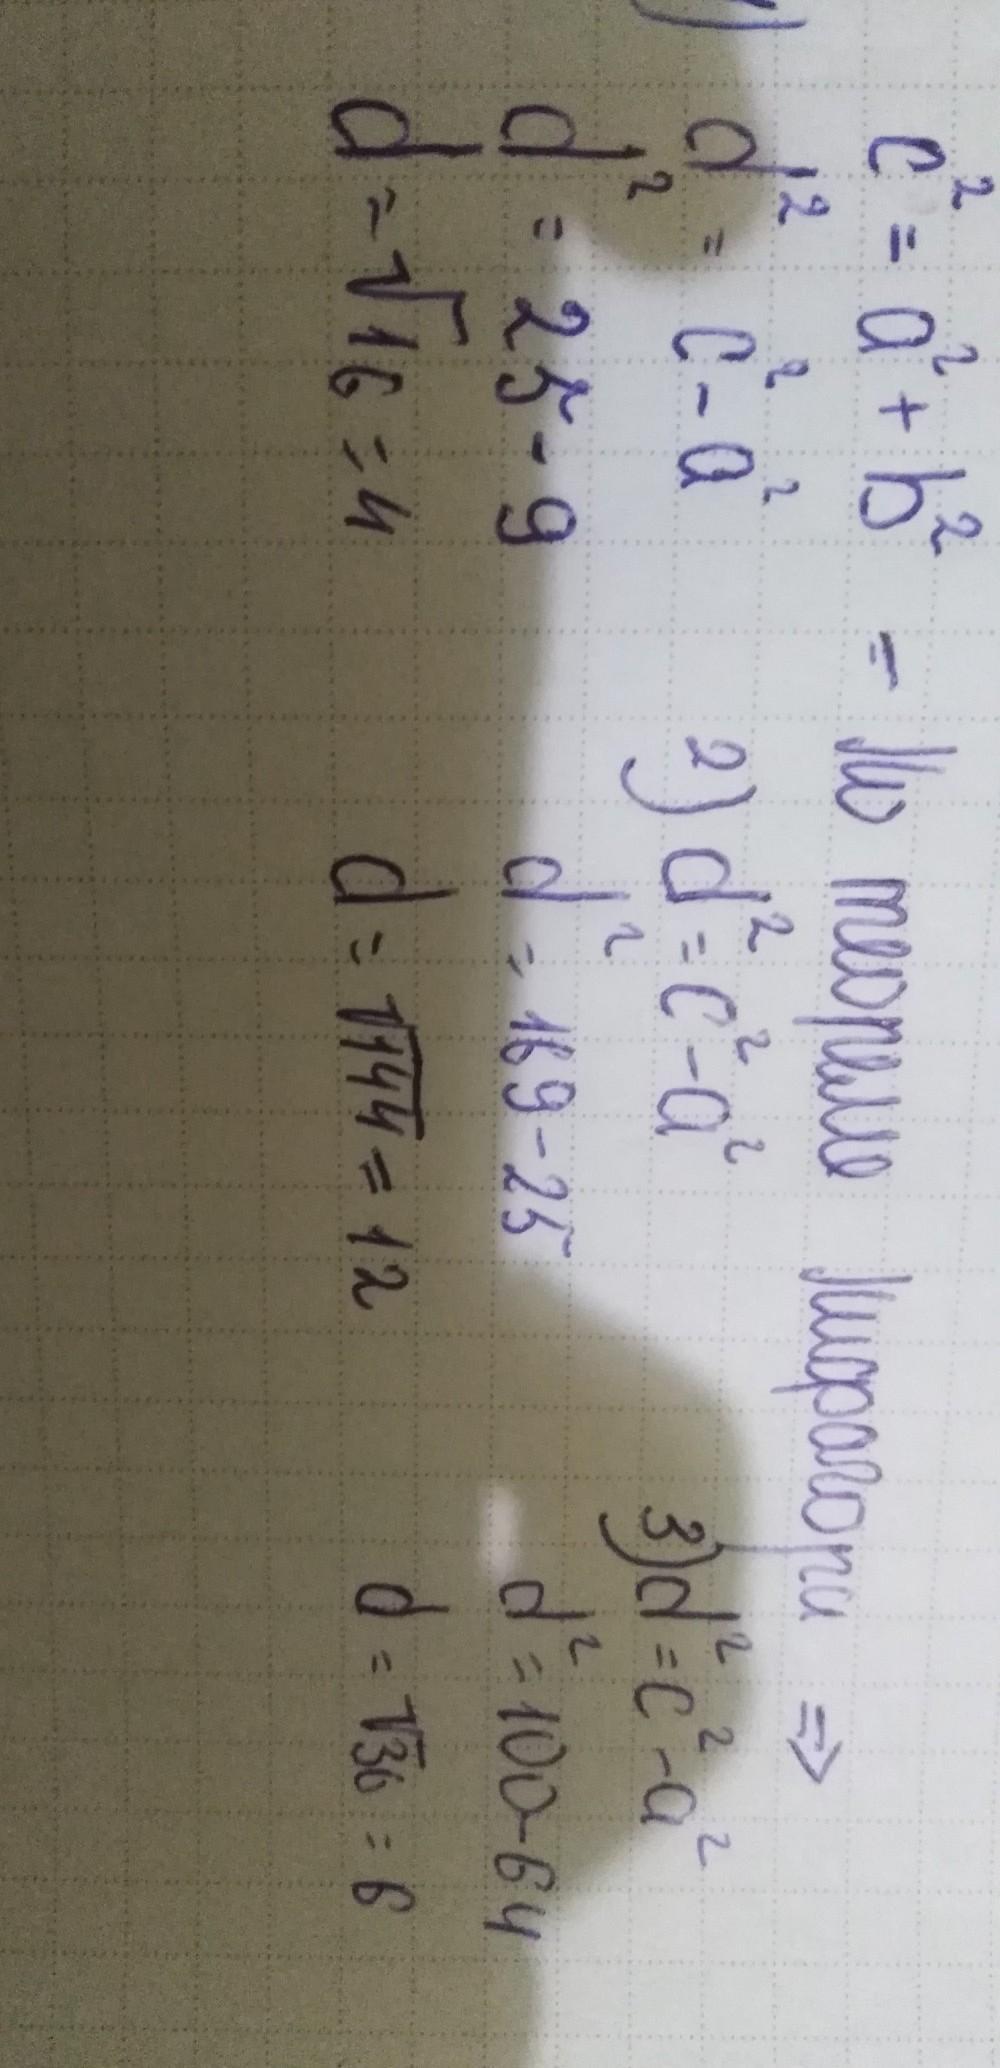 c² = a² + b² = По теореме Пифагора ⇒
) d² = c² - a²
d² = 25 - 9
d = √16 = 4
2) d² = c² - a²
d² = 169 - 25
d = √144 = 12
3) d² = c² - a²
d² = 100 - 64
d = √36 = 6